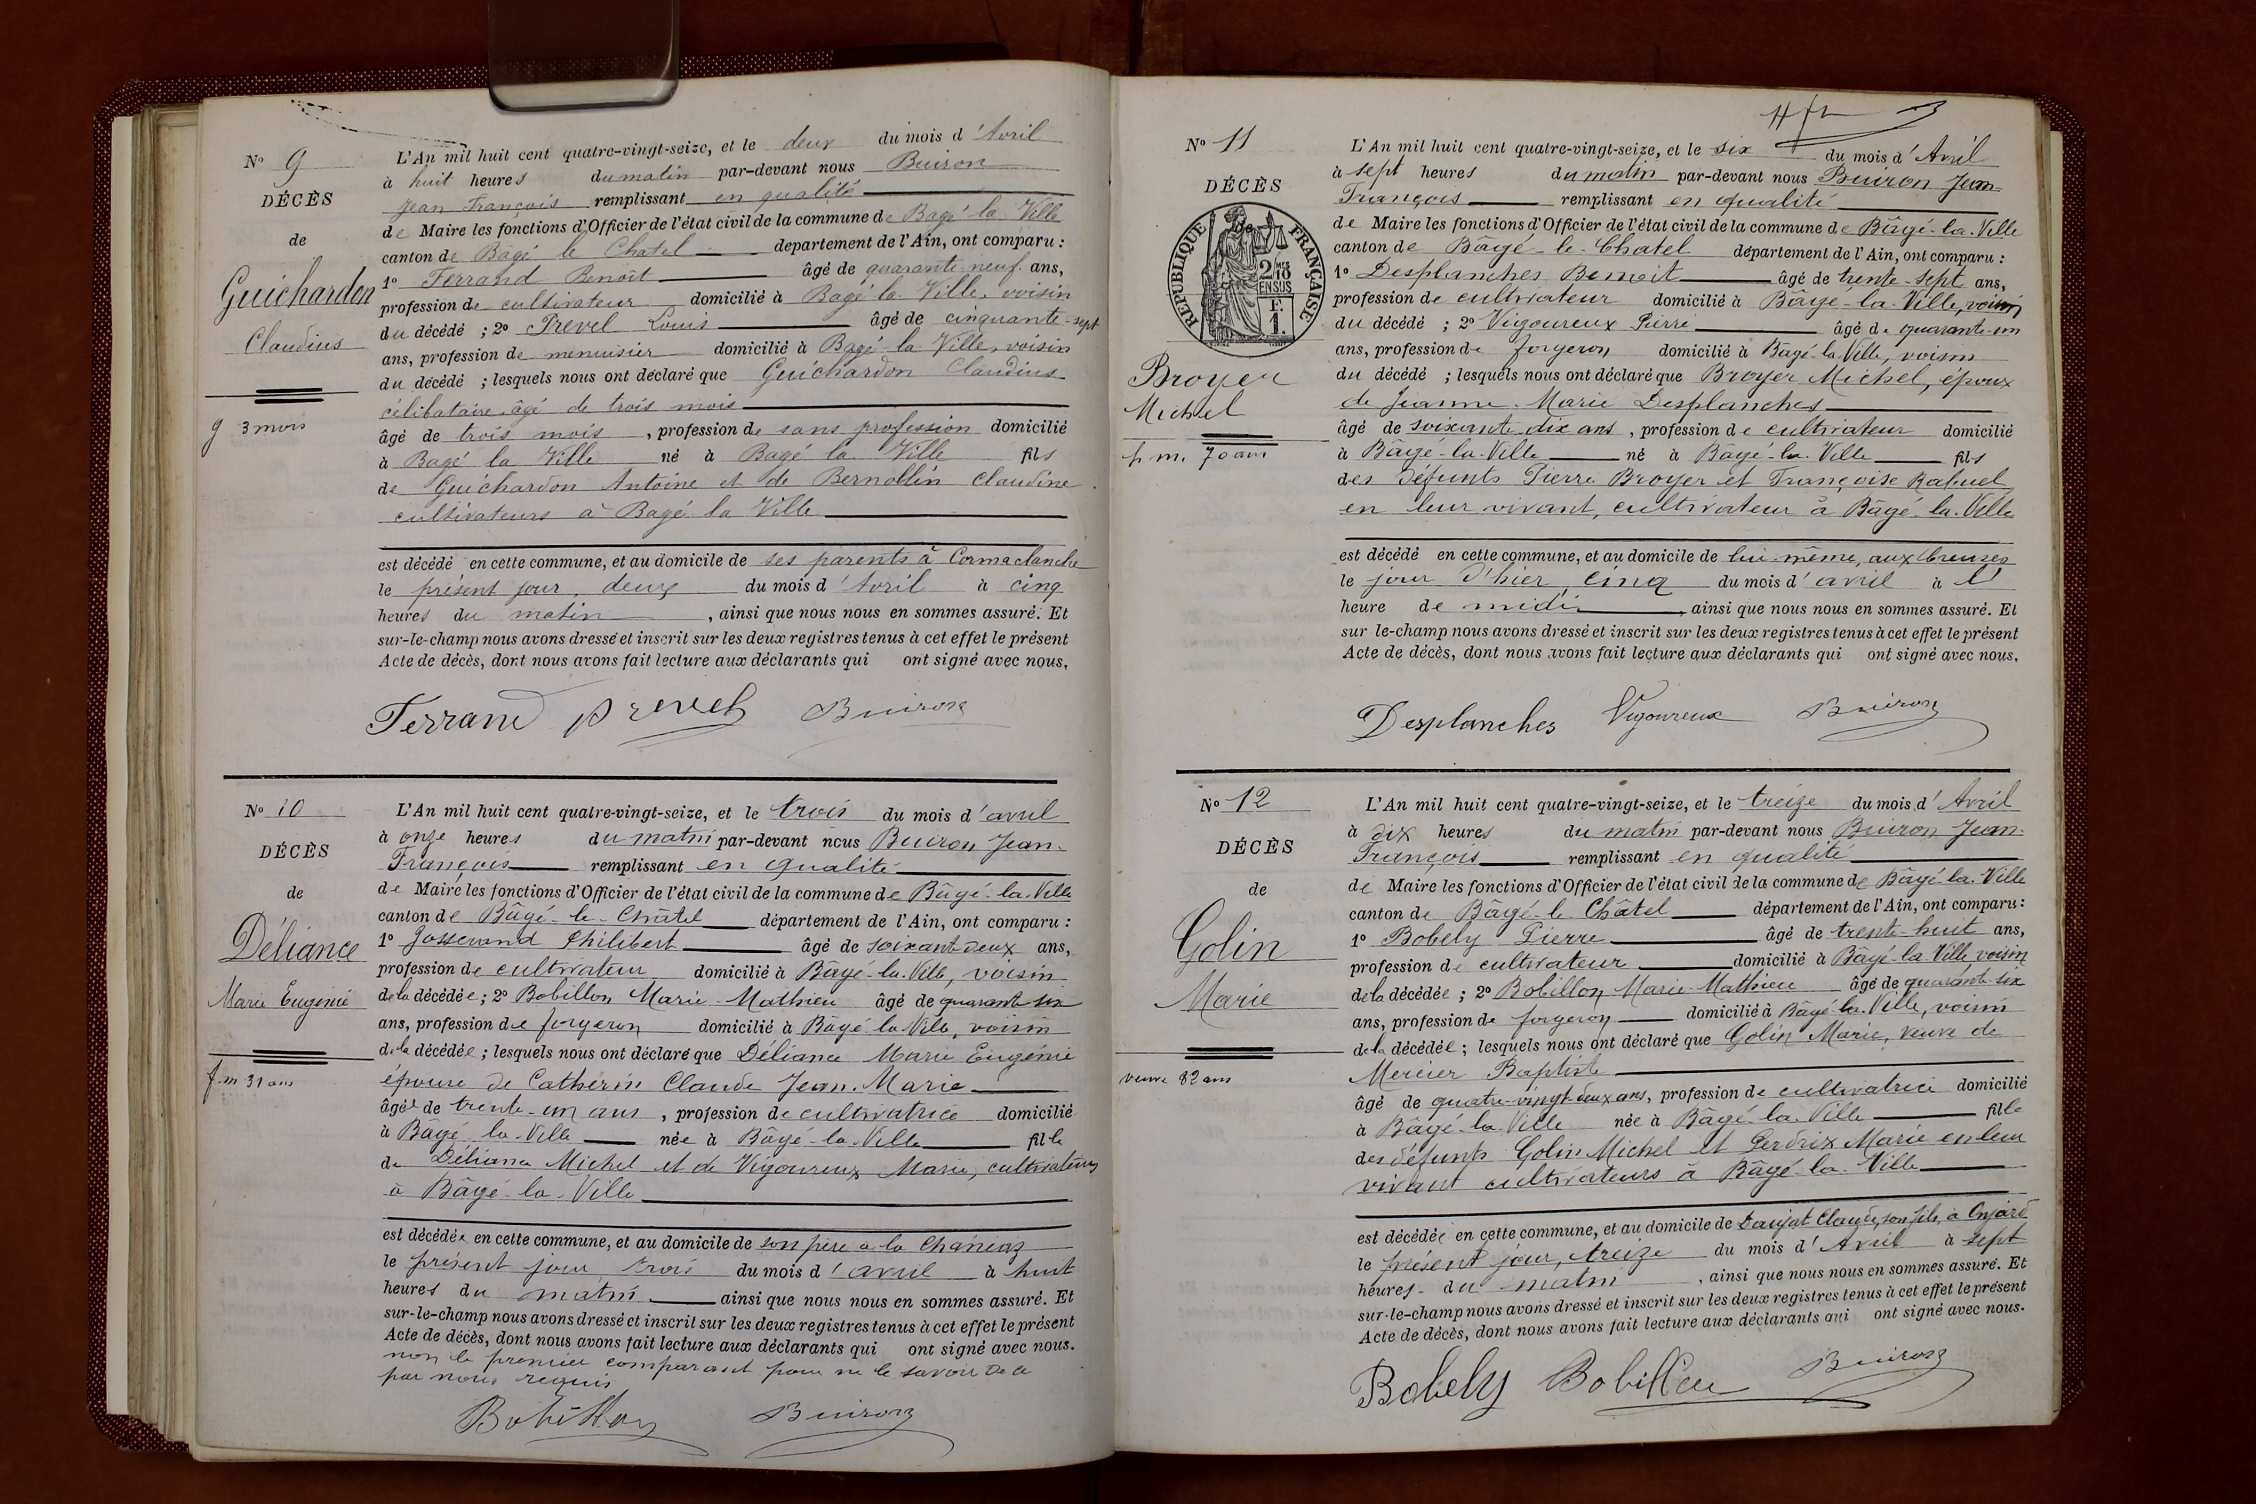 N° 9
DÉCÈS
de
Guichardon
Claudius
g 3 mois
L'An mil huit cent quatre-vingt-seize, et le deux du mois d'Avril
à huit heures du matin par-devant nous Buiron
Jean François remplissant en qualité
de Maire les fonctions d'Officier de l'état civil de la commune de Bagé la Ville
canton de Bâgé le Chatel département de l'Ain, ont comparu :
1° Ferrand Benoît âgé de quarante-neuf ans,
profession de cultivateur domicilié à Bagé la Ville, voisin
du décédé ; 2° Prevel Louis âgé de cinquante-sept
ans, profession de menuisier domicilié à Bagé la Ville, voisin
du décédé ; lesquels nous ont déclaré que Guichardon Claudius
célibataire âgé de trois mois
âgé de trois mois, profession de sans profession domicilié
à Bagé la Ville né à Bagé la Ville fils
de Guichardon Antoine et de Bernollin Claudine
cultivateurs à Bagé la Ville
est décédé en cette commune, et au domicile de ses parents à Cormaclanche
le présent jour, deux du mois d'Avril à cinq
heures du matin, ainsi que nous nous en sommes assuré. Et
sur-le-champ nous avons dressé et inscrit sur les deux registres tenus à cet effet le présent
Acte de décès, dont nous avons fait lecture aux déclarants qui ont signé avec nous,
Ferrand Prevel Buiron
N° 10
DÉCÈS
de
Déliance
Marie Eugénie
f. m 31 ans
L'An mil huit cent quatre-vingt-seize, et le trois du mois d'avril
à onze heures du matin par-devant nous Buiron Jean-
François remplissant en qualité
de Maire les fonctions d'Officier de l'état civil de la commune de Bâgé-la-Ville
canton de Bâgé-le-Châtel département de l'Ain, ont comparu :
1° Josserand Philibert âgé de soixante-deux ans,
profession de cultivateur domicilié à Bâgé-la-Ville, voisin
de la décédée ; 2° Bobillon Marie-Mathieu âgé de quarante-six
ans, profession de forgeron domicilié à Bâgé-la-Ville, voisin
de la décédée ; lesquels nous ont déclaré que Déliance Marie Eugénie
épouse de Catherin Claude Jean-Marie
âgée de trente-un ans, profession de cultivatrice domicilié
à Bâgé-la-Ville née à Bâgé-la-Ville fille
de Déliance Michel et de Vigoureux Marie, cultivateurs
à Bâgé-la-Ville
est décédée en cette commune, et au domicile de son père à la Chanéaz
le présent jour trois du mois d'avril à huit
heures du matin ainsi que nous nous en sommes assuré. Et
sur-le-champ nous avons dressé et inscrit sur les deux registres tenus à cet effet le présent
Acte de décès, dont nous avons fait lecture aux déclarants qui ont signé avec nous.
non le premier comparant pour ne le savoir de ce
par nous requis
Bobillon Buiron
N° 11
DÉCÈS
RÉPUBLIQUE FRANÇAISE
Broyer
Michel
h. m. 70 ans
L'An mil huit cent quatre-vingt-seize, et le six du mois d'Avril
à sept heures du matin par-devant nous Buiron Jean-
François remplissant en qualité
de Maire les fonctions d'Officier de l'état civil de la commune de Bâgé-la-Ville
canton de Bâgé-le-Chatel département de l'Ain, ont comparu :
1° Desplanches Benoit âgé de trente-sept ans,
profession de cultivateur domicilié à Bâgé-la-Ville, voisin
du décédé ; 2° Vigoureux Pierre âgé de quarante-un
ans, profession de forgeron domicilié à Bâgé-la-Ville, voisin
du décédé ; lesquels nous ont déclaré que Broyer Michel, époux
de Jeanne-Marie Desplanches
âgé de soixante-dix ans, profession de cultivateur domicilié
à Bâgé-la-Ville né à Bâgé-la-Ville fils
des défunts Pierre Broyer et Françoise Rabuel
en leur vivant, cultivateur à Bâgé-la-Ville
est décédé en cette commune, et au domicile de lui-même, aux
le jour d'hier, cinq du mois d'avril à l'
heure de midi, ainsi que nous nous en sommes assuré. Et
sur le-champ nous avons dressé et inscrit sur les deux registres tenus à cet effet le présent
Acte de décès, dont nous avons fait lecture aux déclarants qui ont signé avec nous,
Desplanches Vigoureux Buiron
N° 12
DÉCÈS
de
Golin
Marie
veuve 82 ans
L'An mil huit cent quatre-vingt-seize, et le treize du mois d'Avril
à dix heures du matin par-devant nous Buiron Jean-
François remplissant en qualité
de Maire les fonctions d'Officier de l'état civil de la commune de Bâgé-la-Ville
canton de Bâgé-le-Châtel département de l'Ain, ont comparu :
1° Bobely Pierre âgé de trente-huit ans,
profession de cultivateur domicilié à Bâgé-la-Ville voisin
de la décédée ; 2° Bobillon Marie-Mathieu âgé de quarante-six
ans, profession de forgeron domicilié à Bâgé-la-Ville, voisin
de la décédée ; lesquels nous ont déclaré que Golin Marie, veuve de
Mercier Baptiste
âgé de quatre-vingt-deux ans, profession de cultivatrice domicilié
à Bâgé-la-Ville née à Bâgé-la-Ville fille
des défunts Golin Michel et Perdrix Marie en leur
vivant cultivateurs à Bâgé-la-Ville
est décédée en cette commune, et au domicile de Daujat Claude, son fils, à Onjard
le présent jour, treize du mois d'Avril à sept
heures du matin, ainsi que nous nous en sommes assuré. Et
sur-le-champ nous avons dressé et inscrit sur les deux registres tenus à cet effet le présent
Acte de décès, dont nous avons fait lecture aux déclarants qui ont signé avec nous.
Bobely Bobillon Buiron